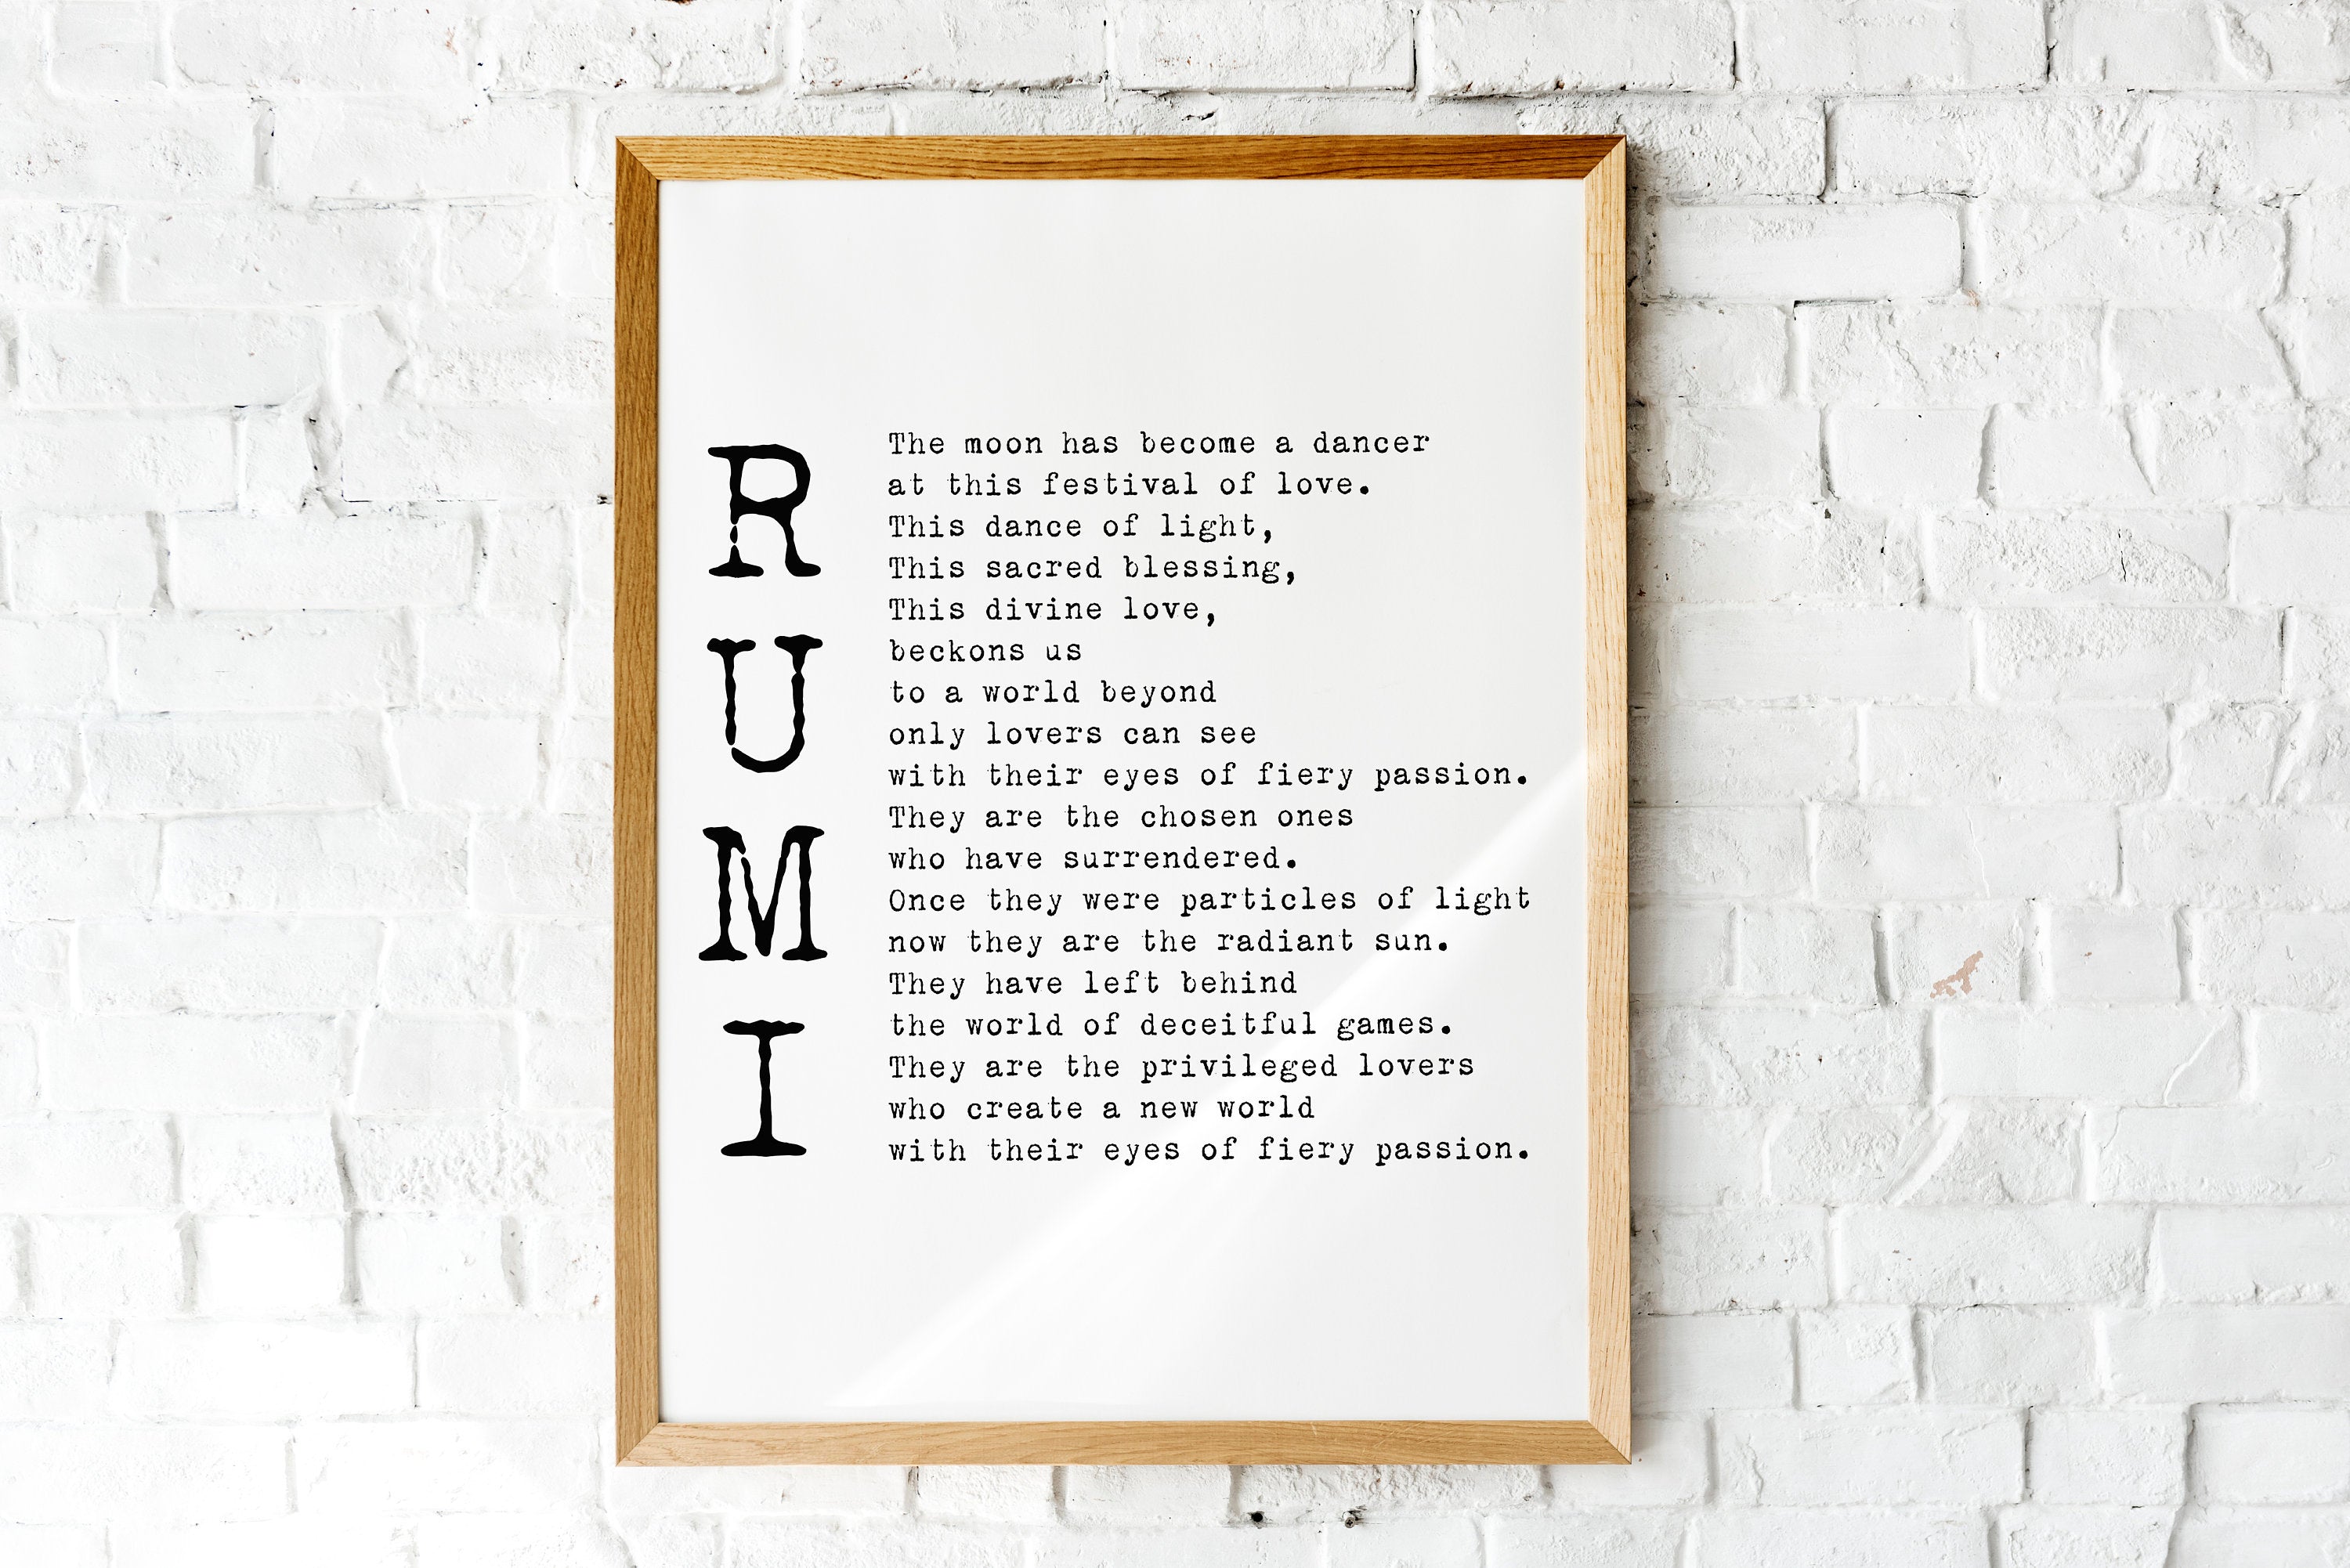 RUMI
The moon has become a dancer
at this festival of love.
This dance of light,
This sacred blessing,
This divine love,
beckons us
to a world beyond
only lovers can see
with their eyes of fiery passion.
They are the chosen ones
who have surrendered.
Once they were particles of light
now they are the radiant sun.
They have left behind
the world of deceitful games.
They are the privileged lovers
who create a new world
with their eyes of fiery passion.